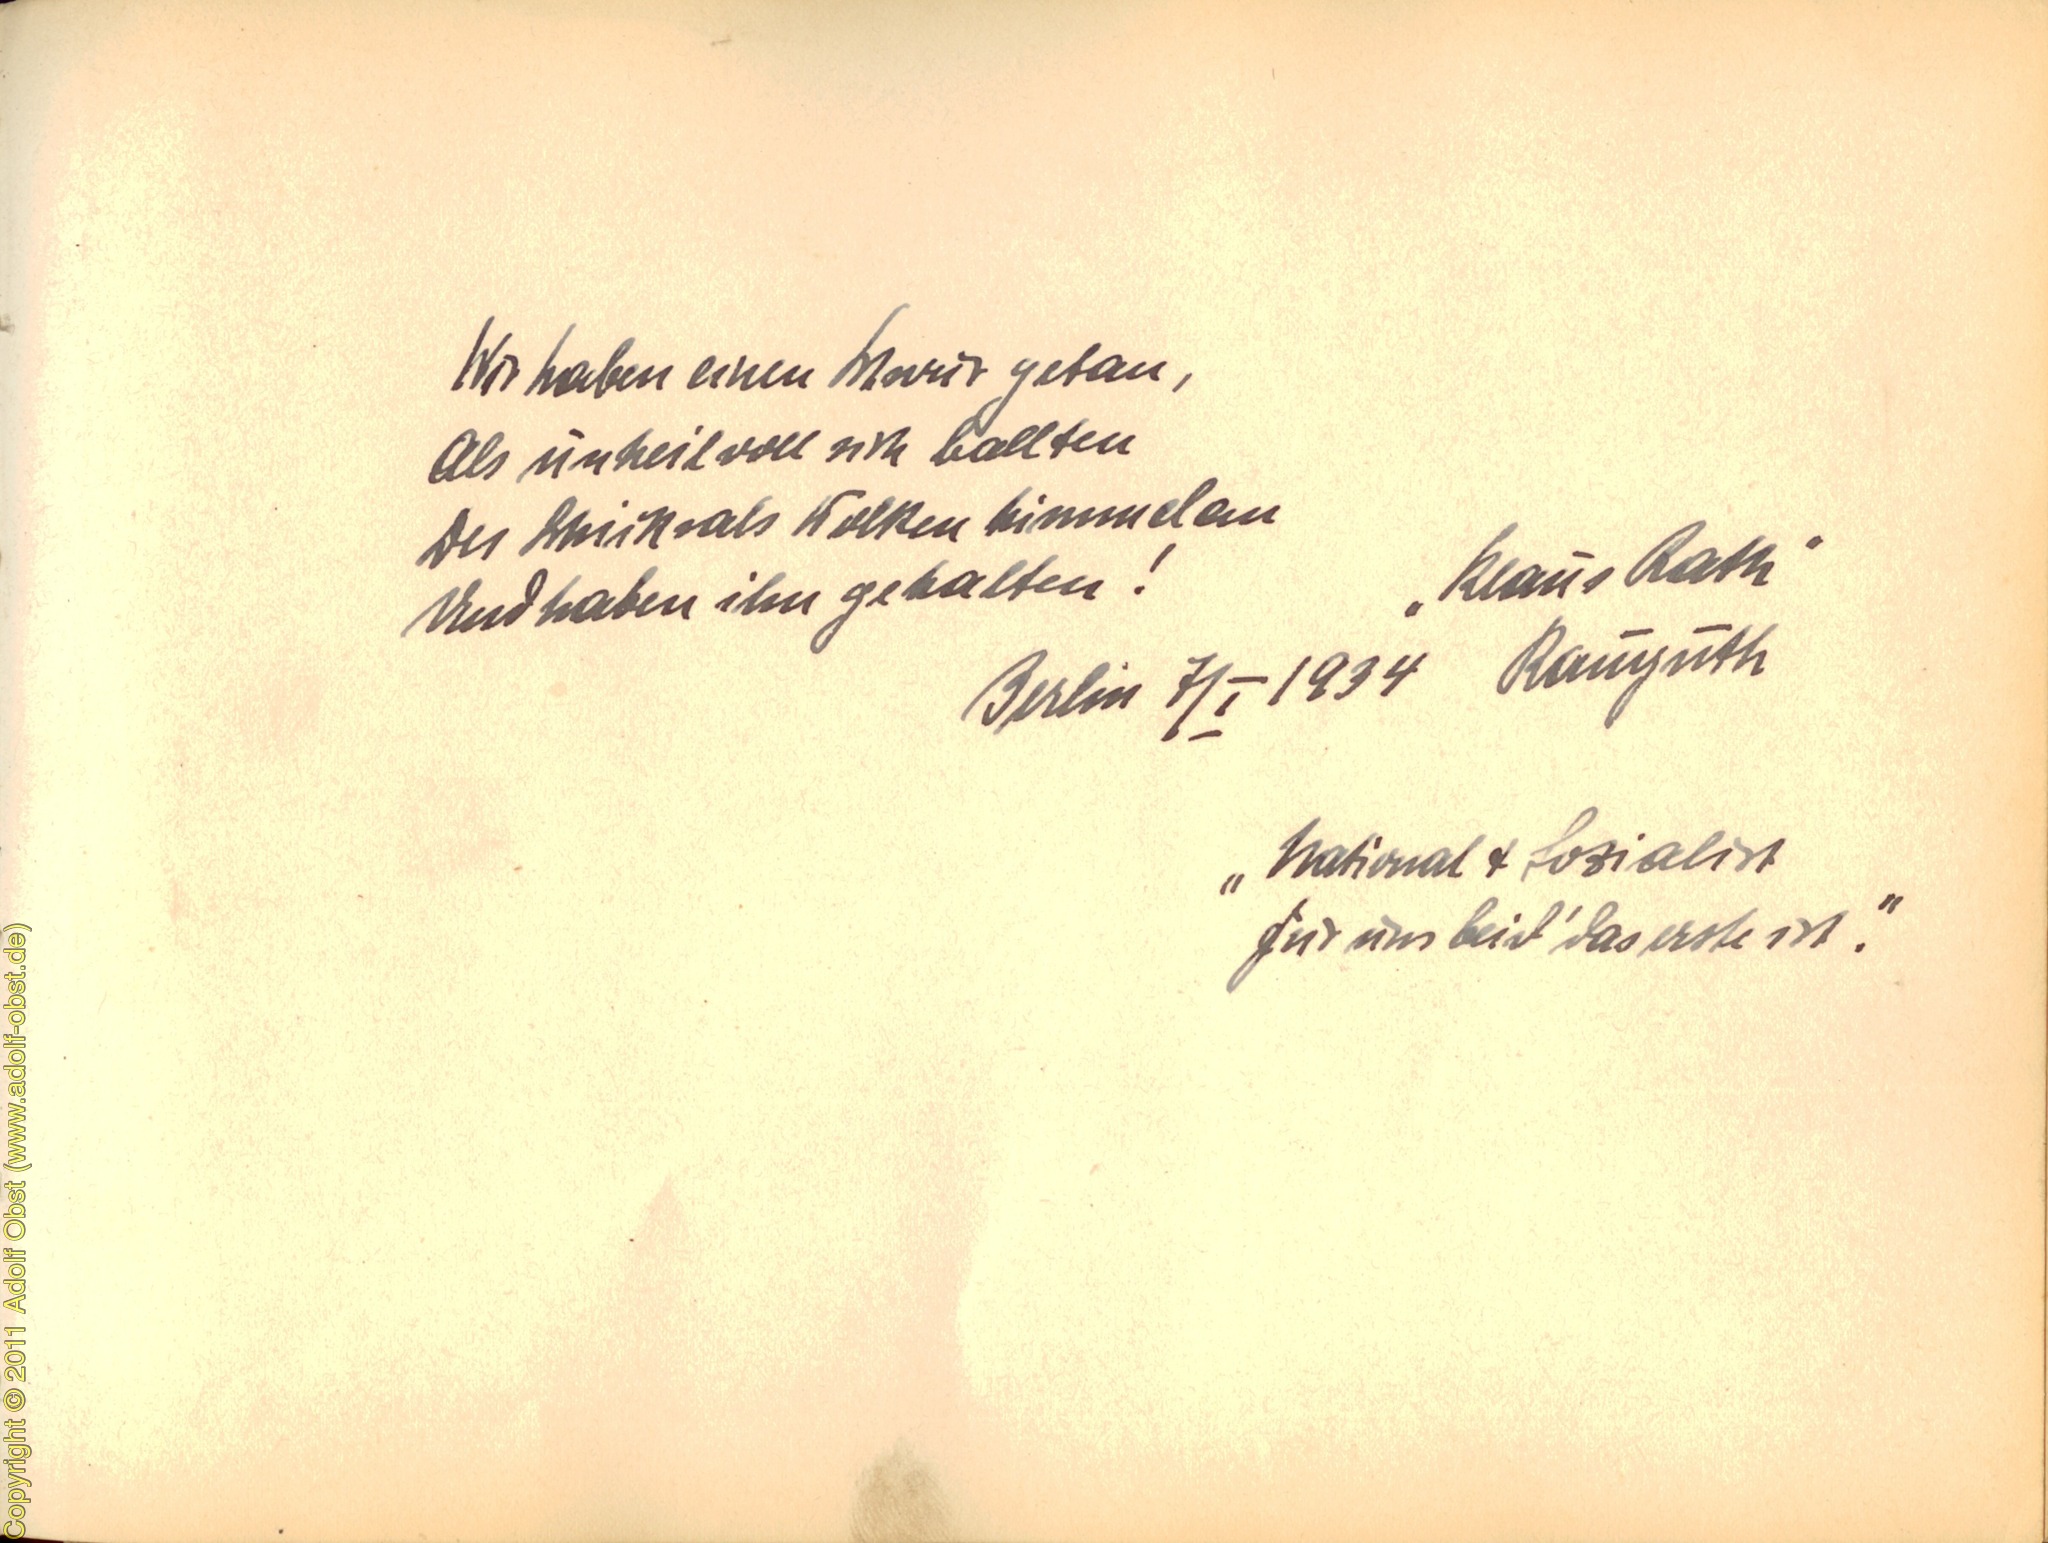 Wir haben einen Schwur getan,
Als unheilvoll sich ballten
Des Schicksals Wolken himmelan
Und haben ihn gehalten!
„Klaus Rath"
Berlin 7/I 1934 Rauguth
„National & Sozialist
Für uns beid' das erste ist."
Copyright © 2011 Adolf Obst (www.adolf-obst.de)